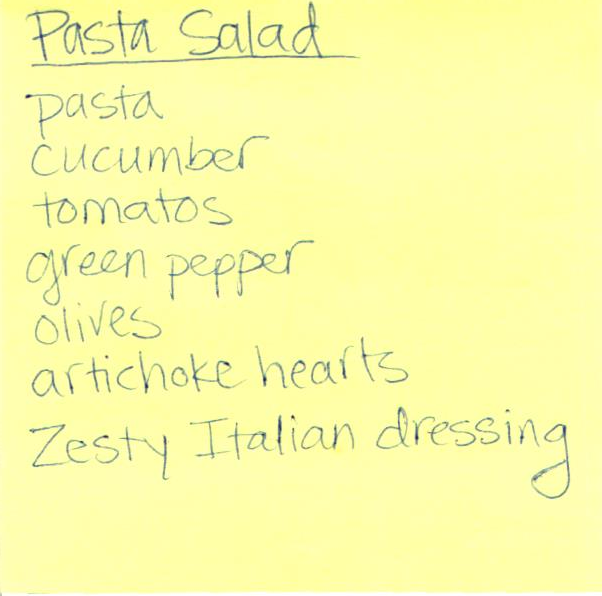 Pasta Salad
pasta
cucumber
tomatos
green pepper
olives
artichoke hearts
Zesty Italian dressing